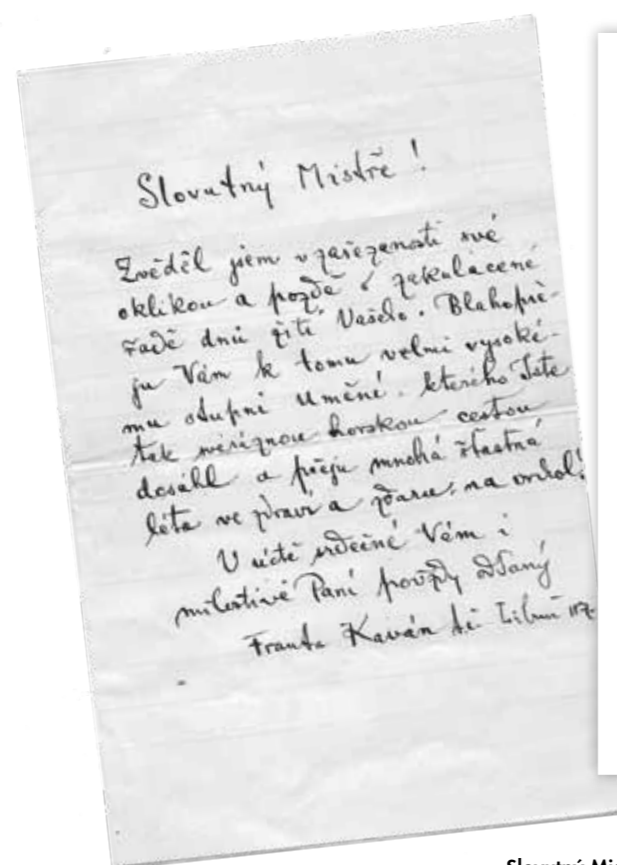 Slovutný Mistře!
Zvěděl jsem v zařezanosti své
oklikou a pozdě o zakulacené
řadě dnů žití Vašeho. Blahopře-
ju Vám k tomu velmi vysoké-
mu stupni Umění, kterého Jste
tak horskou cestou
dosáhl a přeju mnohá šťastná
léta ve zdraví a zdaru, na vrchol!
V úctě srdečné Vám i
milostivé Paní povždy oddaný
Franta Kaván
Slovutný Mis